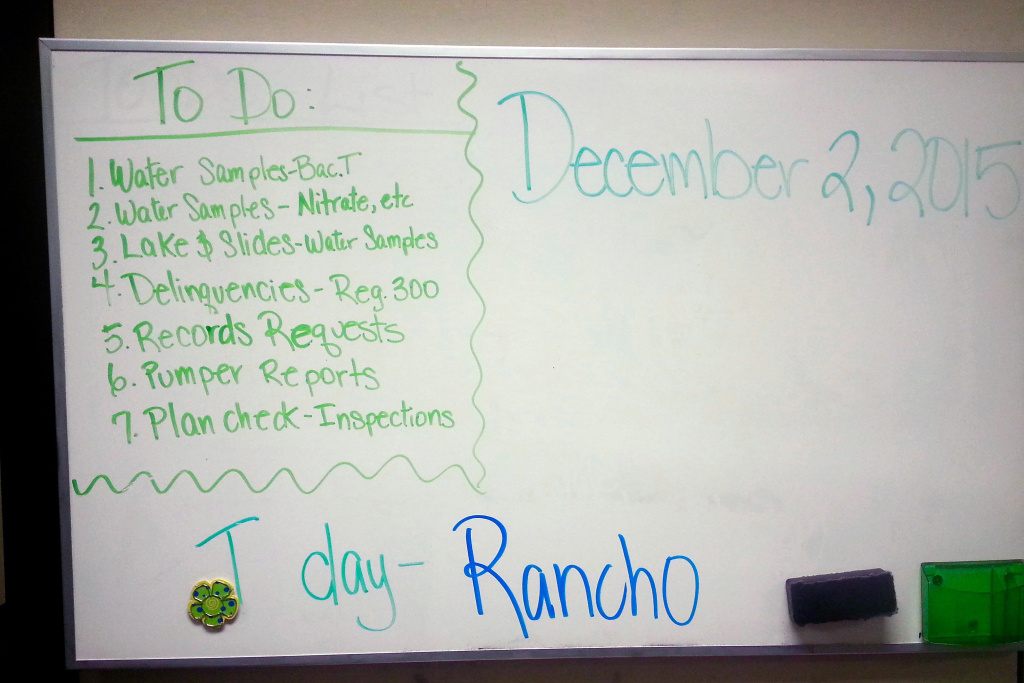 To Do:
1. Water Samples-Bac.T
2. Water Samples- Nitrate, etc
3. Lake & Slides-Water Samples
4. Delinquencies- Reg. 300
5. Records Requests
6. Pumper Reports
7. Plan check-Inspections
December 2, 2015
T day- Rancho